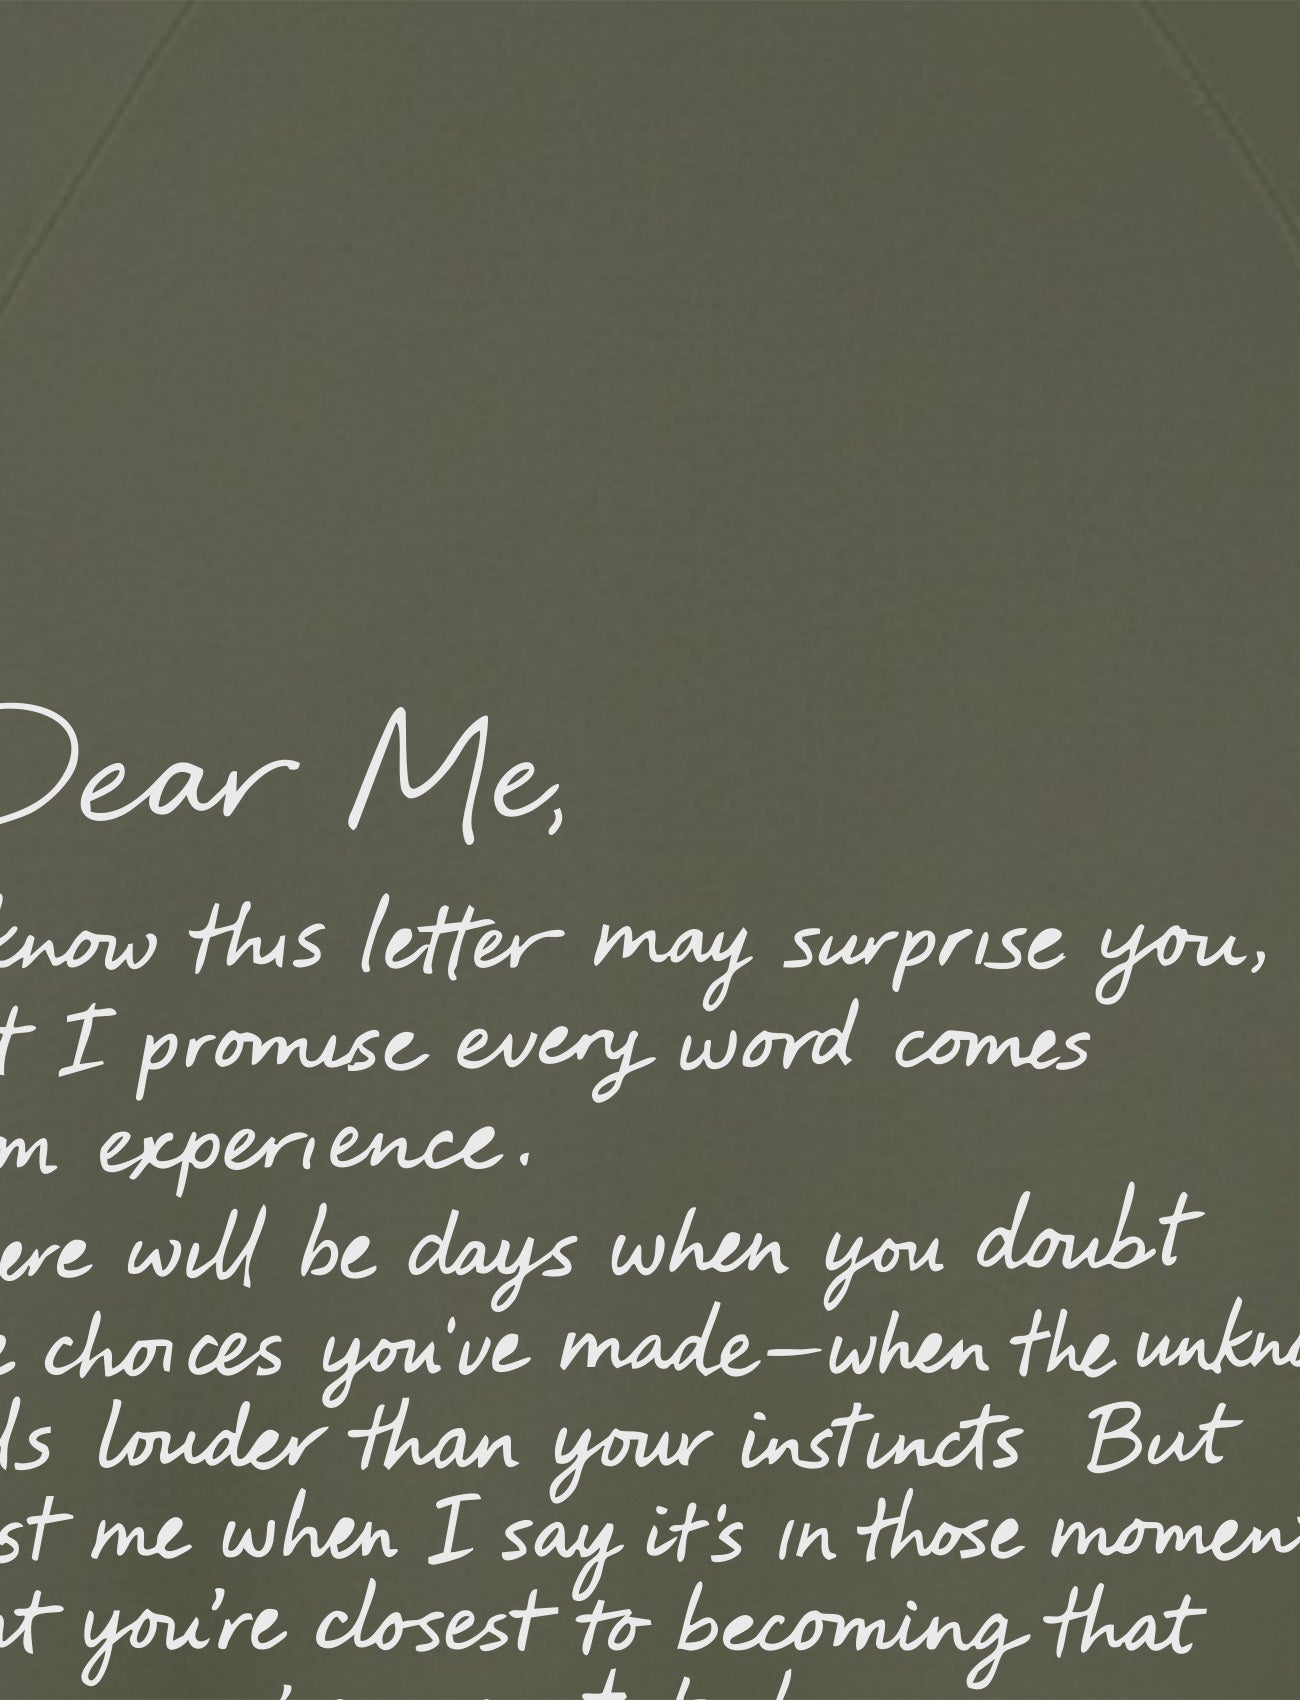 Dear Me,
know this letter may surprise you,
t I promise every word comes
m experience.
ere will be days when you doubt
e choices you've made—when the unkno
ds louder than your instincts But
st me when I say it's in those moment
at you're closest to becoming that